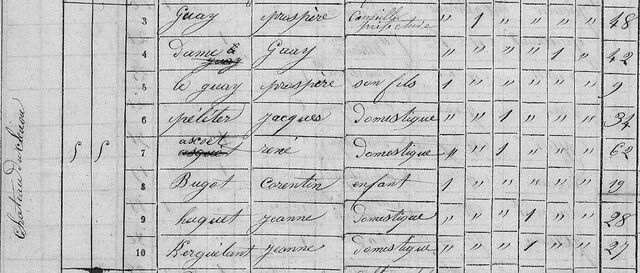 3 Guay prospère Conseiller préfecture " 1 " " " " 48
4 dame Guay " " " " 1 " 42
5 le guay prospère son fils 1 " " " " " 9
6 péliter jacques domestique " " 1 " " " 34
7 ascoët rené Domestique " " 1 " " " 62
8 Bugot Corentin enfant 1 " " " " " 19
9 huguet jeanne domestique " " " 1 " " 28
10 Kerguélant jeanne domestique " " " 1 " " 27
Chateau du